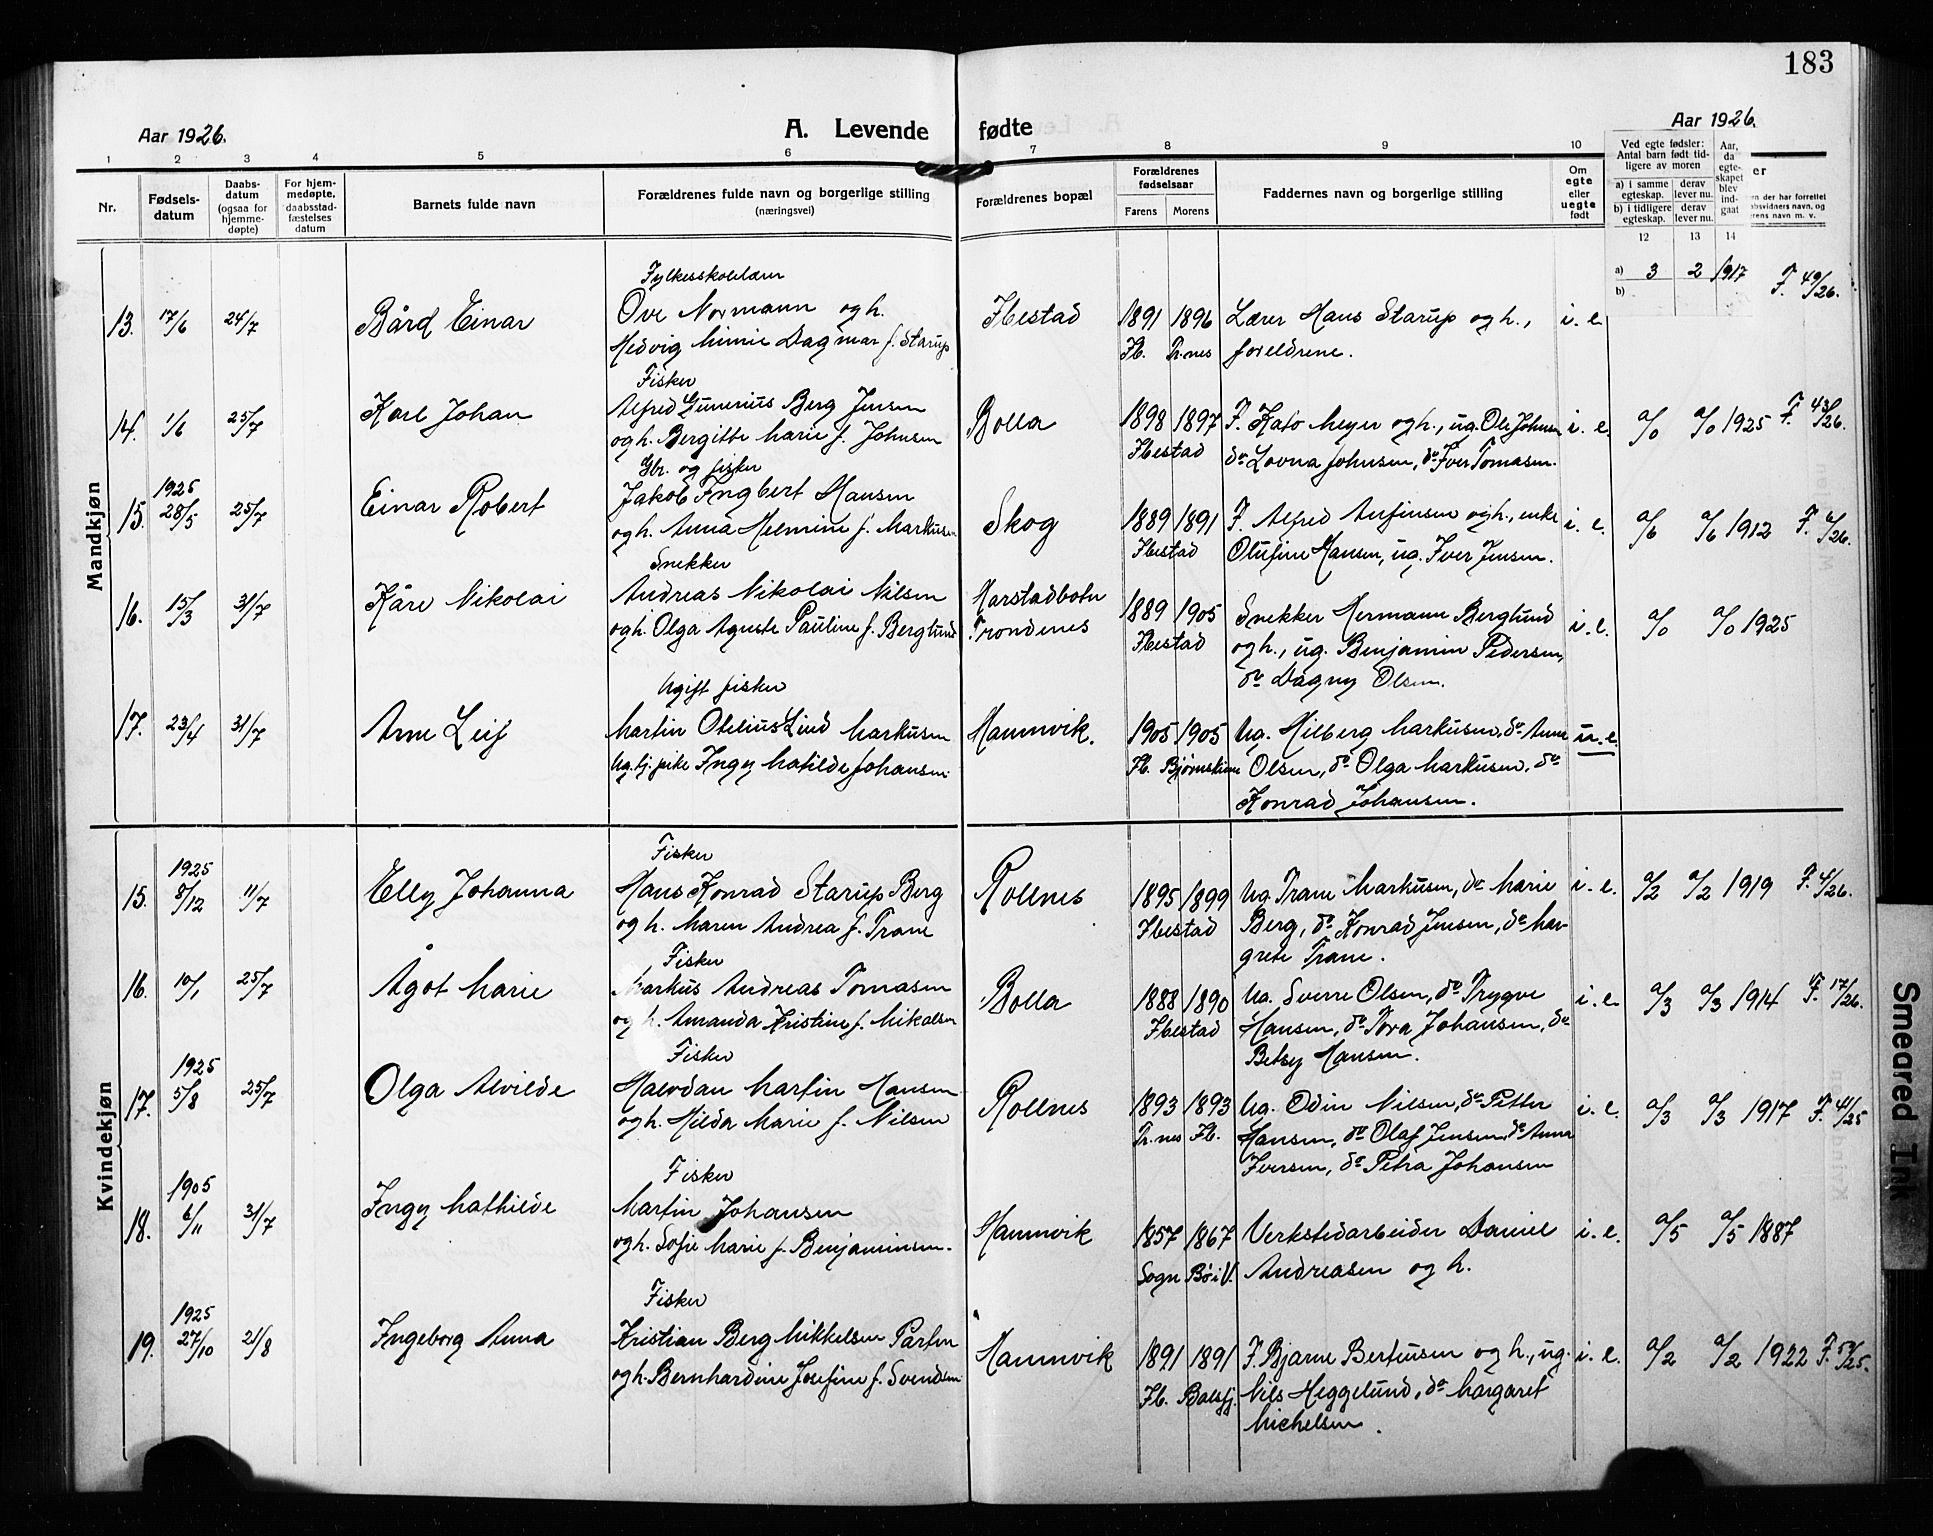 183
Aar 1926.
A. Levende fødte
Aar 1926.
1 2 3 4 5 6 7 8 9 10
Nr.
Fødsels-
datum
Daabs-
datum
(ogsaa for
hjemme-
døpte)
For hjem-
medøpte,
daabsstad-
fæstelses
datum
Barnets fulde navn
Forældrenes fulde navn og borgerlige stilling
(næringsvei)
Forældrenes bopæl
Forældrenes
fødselsaar
Farens Morens
Faddernes navn og borgerlige stilling
Om
egte
eller
uegte
født
Ved egte fødsler:
Antal barn født tid-
ligere av moren
a) i samme
egteskap.
derav
lever nu.
b) i tidligere
egteskap.
derav
lever nu.
Aar,
da
egte-
skapet
blev
ind-
gaat
12 13 14
er
en der har forrettet
absvidners navn, og
rens navn m. v.
Mandkjøn
Fylkesskolelærer
13. 17/6 24/7 Bård Einar Ove Normann og h. Ibestad 1891 1896 Lærer Hans Starup og h., i. e. a) 3 2 1917 F. 49/26.
b)
Hedvig Minnie Dagmar f. Starup Ib. Tr.nes foreldrene.
Fisker
14. 1/6 25/7 Karl Johan Alfred Gunerius Berg Jensen Bolla 1898 1897 F. Kato Meyer og h., ug. Ole Johnsen i. e. a/0 a/0 1925 F. 43/26.
og h. Bergitte Marie f. Johnsen Ibestad do Lovna Johnsen, do Iver Tomasen.
Gbr. og fisker
15. 1925 28/5 25/7 Einar Robert Jakob Ingbert Hansen Skog 1889 1891 F. Alfred Anfinsen og h., enke i. e. a/6 a/6 1912 F. 6/26.
og h. Anna Helmine f. Markusen Ibestad Olufine Hansen, ug. Iver Jensen.
Snekker
16. 15/3 31/7 Kåre Nikolai Andreas Nikolai Nilsen Harstadbotn 1889 1905 Snekker Hermann Berglund i. e. a/0 a/0 1925
og h. Olga Aguste Pauline f. Berglund Trondenes Ibestad og h., ug. Benjamin Pedersen,
do Dagny Olsen.
Ugift fisker
17. 23/4 31/7 Arne Leif Martin Otelius Lind Markusen Hamnvik. 1905 1905 Ug. Hilberg Markusen, do Anna u. e.
Ug. tj. pike Ingy Matilde Johansen. Ib. Bjørnskinn Olsen, do Olga Markusen, do
Konrad Johansen.
Kvindekjøn
Fisker
15. 1925 8/12 11/7 Elly Johanna Hans Konrad Starup Berg Rollnes 1895 1899 Ug. Trane Markusen, do Marie i. e. a/2 a/2 1919 F. 4/26.
og h. Maren Andrea f. Trane Ibestad Berg, do Konrad Jensen, do Mar-
grete Trane.
Fisker
16. 10/1 25/7 Ågot Marie Markus Andreas Tomasen Bolla 1888 1890 Ug. Sverre Olsen, do Trygve i. e. a/3 a/3 1914 F. 17/26.
og h. Amanda Kristine f. Mikalsen Ibestad Hansen, do Tora Johansen, do
Betsy Hansen.
Fisker
17. 1925 5/8 25/7 Olga Alvilde Halvdan Martin Hansen Rollnes 1893 1893 Ug. Odin Nilsen, do Petter i. e. a/3 a/3 1917 F. 41/25
og h. Hilda Marie f. Nilsen Tr.nes Ib. Hansen, do Olaf Jensen, do Anna
Iversen, do Petra Johansen
Fisker
18. 1905 6/11 31/7 Ingy Mathilde Martin Johansen Hamnvik 1857 1867 Verkstedarbeider Daniel i. e. a/5 a/5 1887
og h. Sofie Marie f. Benjaminsen. Sogn Bø i V. Andreasen og h.
Fisker
19. 1925 27/10 21/8 Ingeborg Anna Kristian Berg Mikkelsen Parten Hamnvik 1891 1891 F. Bjarne Berteusen og h., ug. i. e. a/2 a/2 1922 F. 50/25.
og h. Bernhardine Josefine f. Svendsen Ib. Balsfj. Nils Heggelund, do Margaret
Michelsen.
Smeared Ink